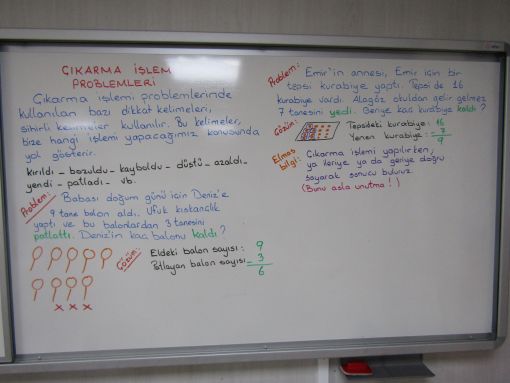 ÇIKARMA İŞLEM
PROBLEMLERİ
Çıkarma işlemi problemlerinde
kullanılan bazı dikkat kelimeleri,
sihirli kelimeler kullanılır. Bu kelimeler,
bize hangi işlemi yapacağımız konusunda
yol gösterir.
kırıldı - bozuldu - kayboldu - düştü - azaldı -
yendi - patladı - vb.
Problem: Babası doğum günü için Deniz'e
9 tane balon aldı. Ufuk kıskançlık
yaptı ve bu balonlardan 3 tanesini
patlattı. Deniz'in kaç balonu kaldı?
Çözüm:
Eldeki balon sayısı: 9
Patlayan balon sayısı: - 3
6
x x x
Problem: Emir'in annesi, Emir için bir
tepsi kurabiye yaptı. Tepside 16
kurabiye vardı. Alagöz okuldan gelir gelmez
7 tanesini yedi. Geriye kaç kurabiye kaldı?
Çözüm:
Tepsideki kurabiye: 16
Yenen kurabiye: - 7
9
Elmas bilgi: Çıkarma işlemi yapılırken,
ya ileriye ya da geriye doğru
sayarak sonucu buluruz.
(Bunu asla unutma!)